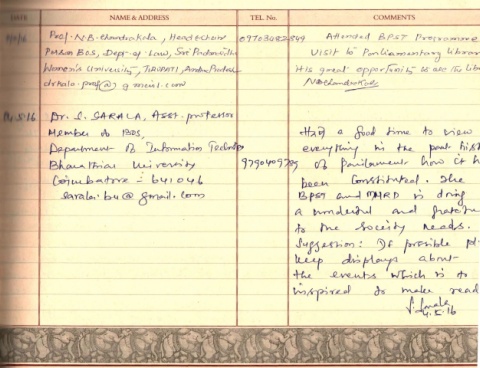 DATE NAME & ADDRESS TEL. No. COMMENTS
Prof. N.B. Chandrakala, Head & Chair
Person BOS, Dept. of Law, Sri Padmavathi
Women's University, TIRUPATI, Andhra Pradesh
Attended BPST Programme
Visit to Parliamentary Librar
Its great opportunity to see the Lib
NBChandrakala
5.16
Dr. S. SARALA, Asst. professor
Member of BOS,
Department of Information Technolo
Bharathiar University
Coimbatore : 641 046
sarala.bu@gmail.com
a good time to view
everything in the past hist
of parliament how it h
been constituted. The
BPST and MHRD is doing
a wonderful and
to the society needs.
Suggestion: If possible pl
keep displays about
the events which is to
inspired to make read
5.16